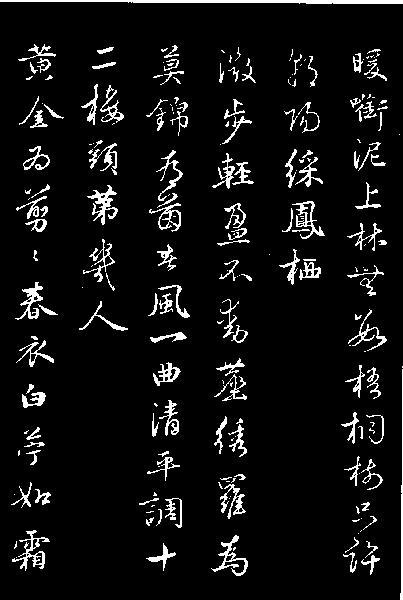 暖啣泥上林無數梧桐樹只許
朝陽綵鳳栖
微步輕盈不動塵綉羅為
莫錦為茵春風一曲清平調十
二樓頭第幾人
黃金為剪〻春衣白苧如霜